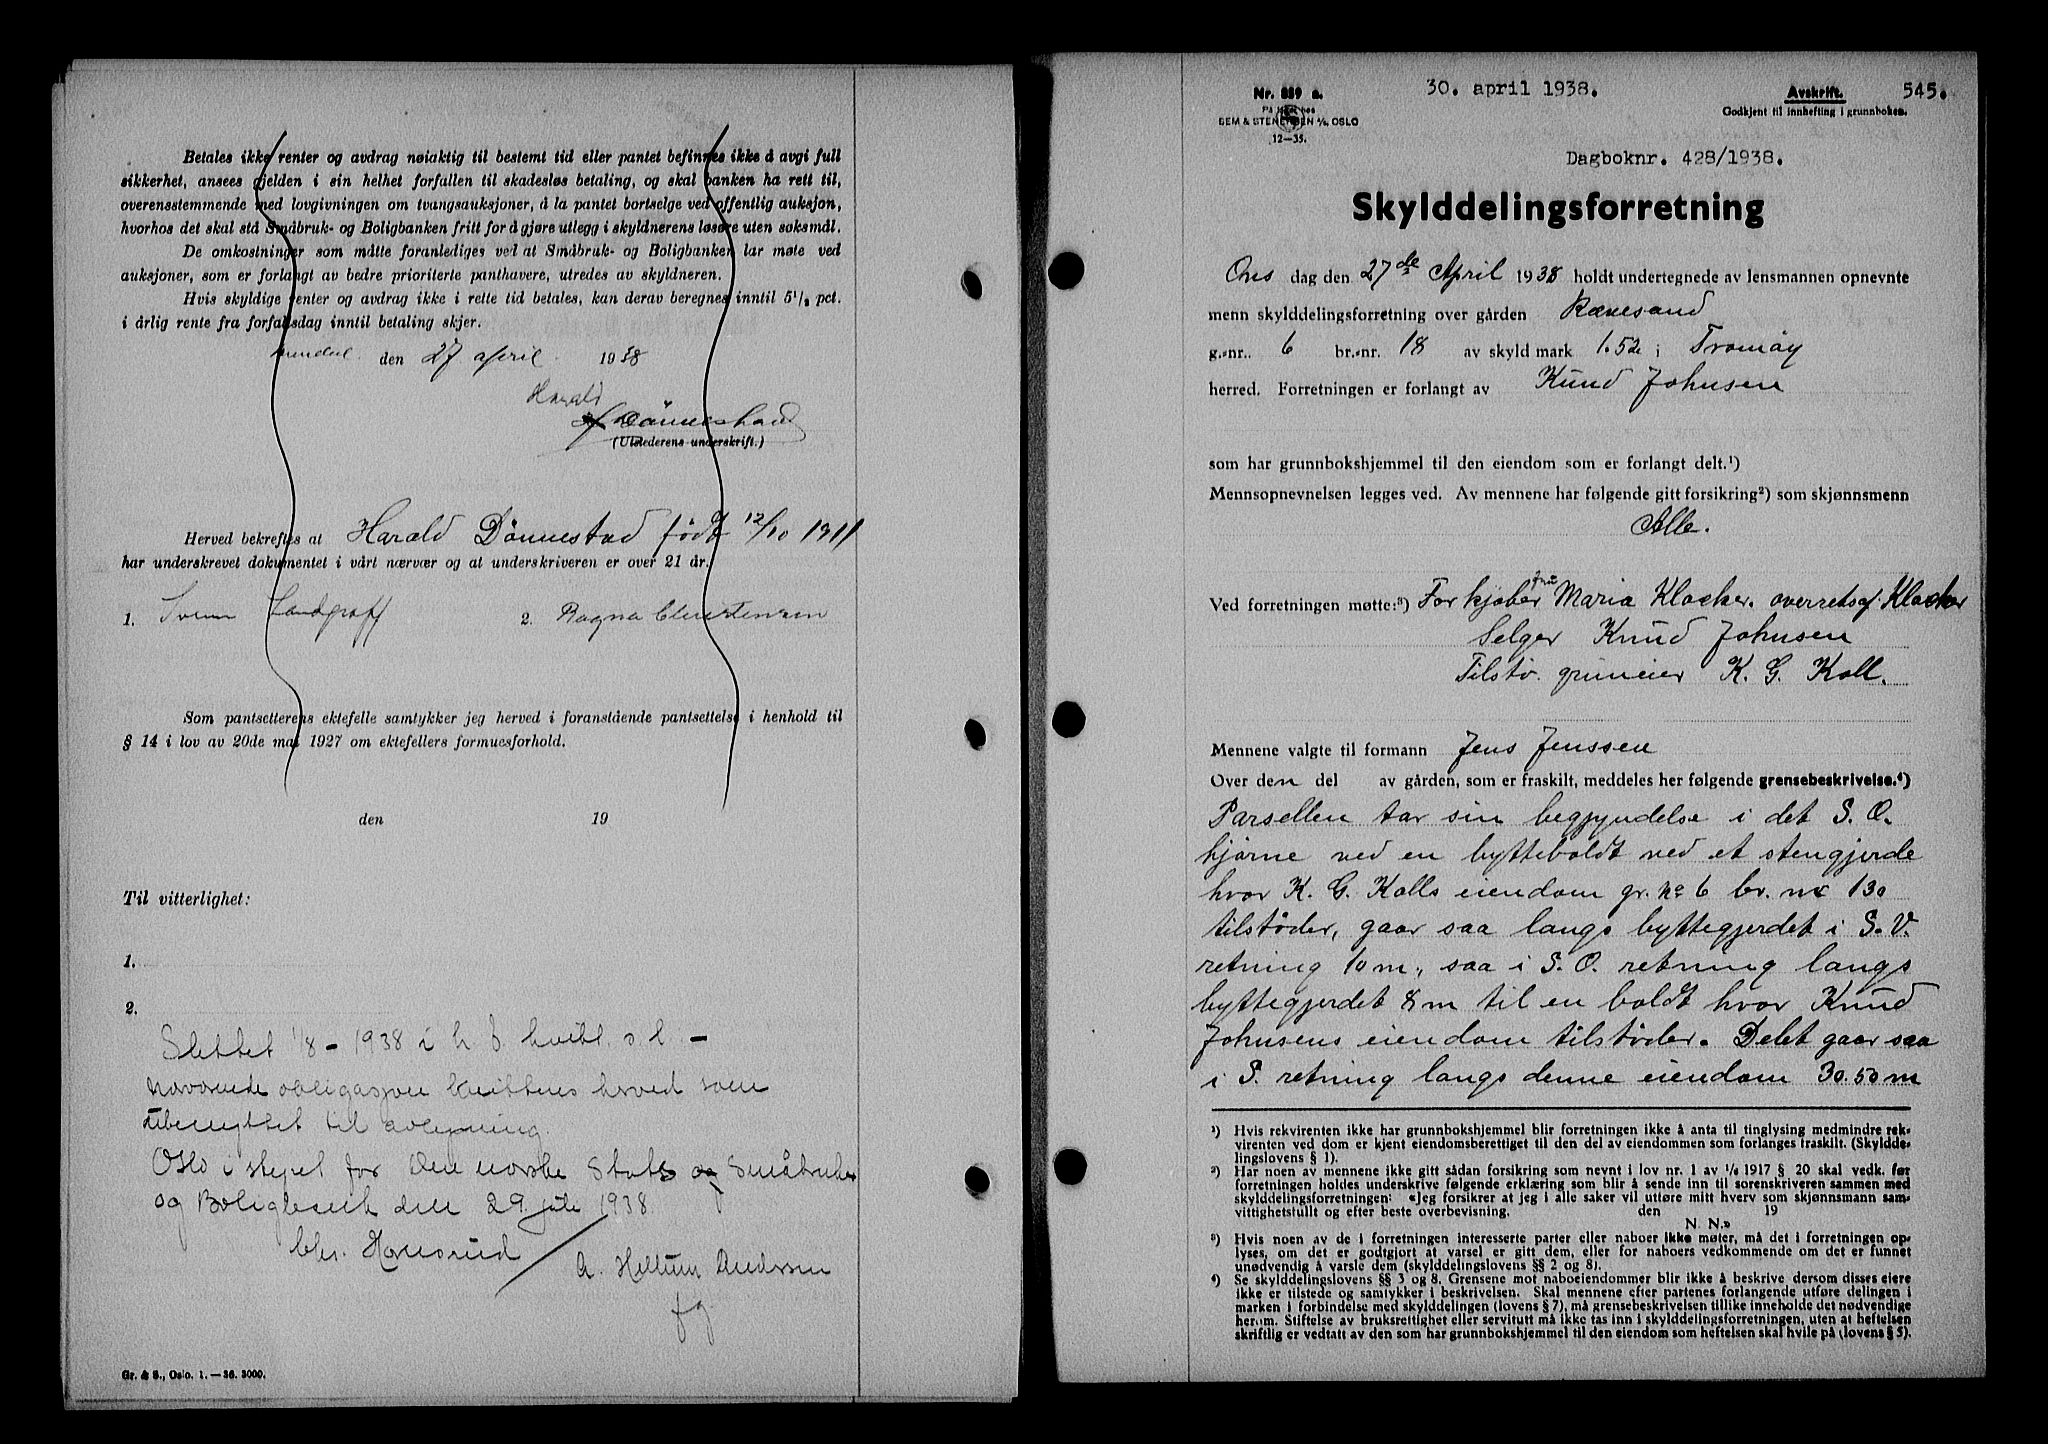 Betales ikke renter og avdrag nøiaktig til bestemt tid eller pantet befinnes ikke å avgi full
sikkerhet, ansees gjelden i sin helhet forfallen til skadesløs betaling, og skal banken ha rett til,
overensstemmende med lovgivningen om tvangsauksjoner, å la pantet bortselge ved offentlig auksjon,
hvorhos det skal stå Småbruk- og Boligbanken fritt for å gjøre utlegg i skyldnerens løsøre uten søksmål.
De omkostninger som måtte foranlediges ved at Småbruk- og Boligbanken lar møte ved
auksjoner, som er forlangt av bedre prioriterte panthavere, utredes av skyldneren.
Hvis skyldige renter og avdrag ikke i rette tid betales, kan derav beregnes inntil 5½ pct.
i årlig rente fra forfallsdag inntil betaling skjer.
Arendal den 27 april 1938
Harald
Dönnestad
(Utstederens underskrift.)
Herved bekreftes at Harald Dönnestad født 12/10 1911
har underskrevet dokumentet i vårt nærvær og at underskriveren er over 21 år.
1. Svenn Landgraff 2. Ragna Christensen
Som pantsetterens ektefelle samtykker jeg herved i foranstående pantsettelse i henhold til
§ 14 i lov av 20de mai 1927 om ektefellers formuesforhold.
den 19
Til vitterlighet:
1.
2.
Slettet 1/8 - 1938 i h t kvitt. s l -
nærværende obligasjon kvitteres herved som
ubenyttet til avlysning.
Oslo i styret for Den norske Stats og Småbruk
og Boligbank den 29 juli 1938
Chr. Housrud / A. Hellum Andersen
fg.
Gr. & S., Oslo. 1.—36. 3000.
30. april 1938. 545.
Nr. 859 a.
På lager hos
SEM & STENERSEN A/S, OSLO
12—35.
Avskrift.
Godkjent til innhefting i grunnboken.
Dagboknr. 428/1938.
Skylddelingsforretning
Ons dag den 27de April 1938 holdt undertegnede av lensmannen opnevnte
menn skylddelingsforretning over gården Rævesand
g.-nr. 6 br.-nr. 18 av skyld mark 1.52 i Tromöy
herred. Forretningen er forlangt av Knud Johnsen
som har grunnbokshjemmel til den eiendom som er forlangt delt.¹)
Mennsopnevnelsen legges ved. Av mennene har følgende gitt forsikring²) som skjønnsmenn
Alle.
Ved forretningen møtte:³) For kjøber fru Maria Klocker. overretsf. Klocker
Selger Knud Johnsen
Tilstø. gruneier K. G. Koll.
Mennene valgte til formann Jens Jenssen
Over den del av gården, som er fraskilt, meddeles her følgende grensebeskrivelse.⁴)
Parsellen tar sin begynndelse i det S. O.
hjørne ved en bytteboldt ved et stengjerde
hvor K. G. Kolls eiendom gr. no 6 br. nr 130
tilstøder, gaar saa langs byttegjerdet i S. V.
retning 10 m., saa i S. O. retning langs
byttegjerdet 8 m til en boldt hvor Knud
Johnsens eiendom tilstøder. Delet gaar saa
i S. retning langs denne eiendom 30.50 m
¹) Hvis rekvirenten ikke har grunnbokshjemmel blir forretningen ikke å anta til tinglysing medmindre rek-
virenten ved dom er kjent eiendomsberettiget til den del av eiendommen som forlanges fraskilt. (Skyldde-
lingslovens § 1).
²) Har noen av mennene ikke gitt sådan forsikring som nevnt i lov nr. 1 av 1/6 1917 § 20 skal vedk. før
forretningen holdes underskrive følgende erklæring som blir å sende inn til sorenskriveren sammen med
skylddelingsforretningen: «Jeg forsikrer at jeg i alle saker vil utføre mitt hverv som skjønnsmann sam-
vittighetsfullt og efter beste overbevisning. den 19
N. N.»
³) Hvis noen av de i forretningen interesserte parter eller naboer ikke møter, må det i forretningen op-
lyses, om det er godtgjort at varsel er gitt dem, eller for naboers vedkommende om det er funnet
unødvendig å varsle dem (skylddelingslovens §§ 2 og 8).
⁴) Se skylddelingslovens §§ 3 og 8. Grensene mot naboeiendommer blir ikke å beskrive dersom disses eiere
ikke er tilstede og samtykker i beskrivelsen. Skal mennene efter partenes forlangende utføre delingen i
marken i forbindelse med skylddelingen (lovens § 7), må grensebeskrivelsen tillike inneholde det nødvendige
herom. Stiftelse av bruksrettighet eller servitutt må ikke tas inn i skylddelingsforretningen, uten at heftelsen
skriftlig er vedtatt av den som har grunnbokshjemmel til den eiendom som heftelsen skal hvile på (lovens § 5).